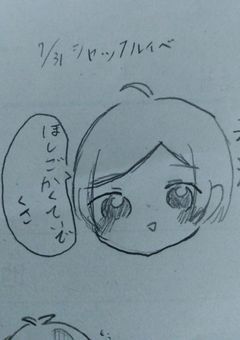 7/31 シャッフルイベ
ほしごかくていで
くさ